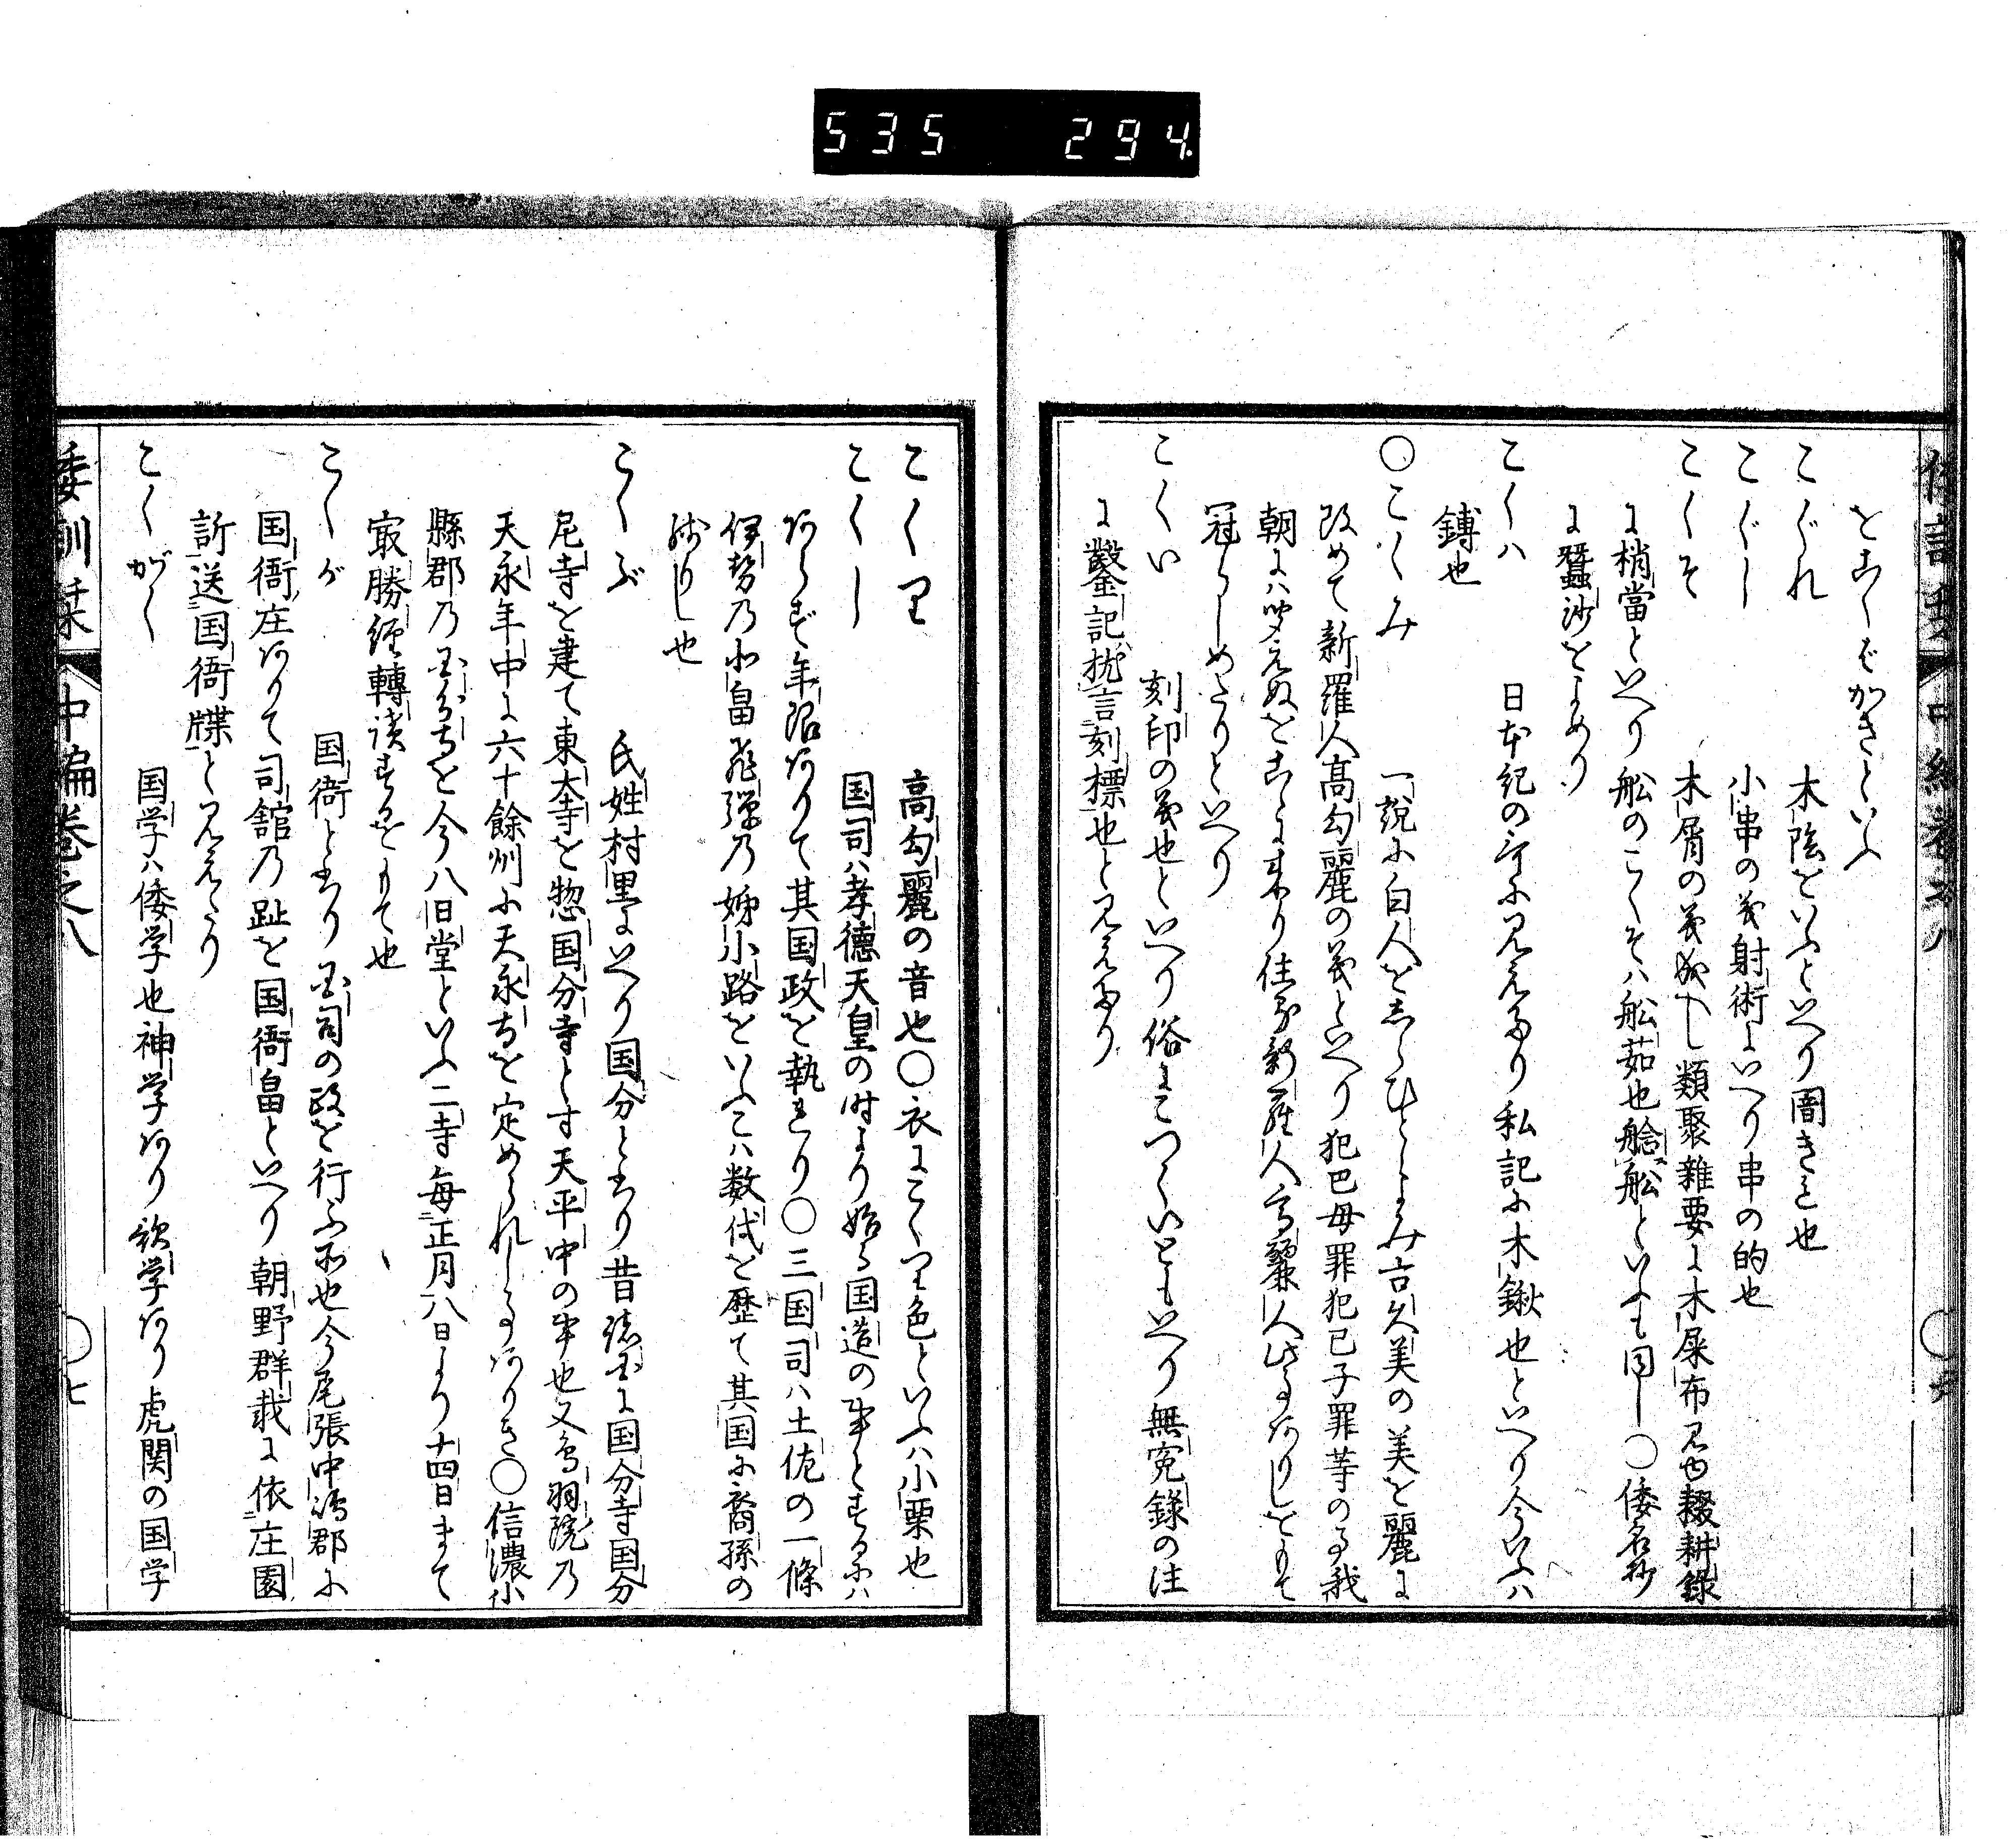 535 294
をこくばかきといふ
こぐれ 木陰をいふといへり闇きを也
こぐし 小串の義射術にいへり串の的也
こくそ 木屑の義成へし類聚雜要に木屎布見ゆ輟耕録
に梢當といへり舩のこくそハ舩茹也艌舩といふも同し〇倭名抄
に蠶沙をよめり
こくハ 日本紀の哥に見えたり私記に木鍬也といへり今いふハ
鎛也
〇こくみ 一說に白人をしらひとよみ古久美の美を麗に
改めて新羅人高勾麗の義といへり犯巴母罪犯巳子罪等の事我
朝にハ聞えぬをこゝに来り住る新羅人高麗人此事ありしをもて
冠らしめたりといへり
こくい 刻印の義也といへり俗にこつくいともいへり無寃錄の注
に鑿記杭言刻標也と見えたり
こくり 高勾麗の音也〇衣にこくり色といふハ小栗也
こくし 国司ハ孝德天皇の時より始る国造の事とするにハ
あらず年限ありて其国政を執れり〇三国司ハ土佐の一條
伊勢乃北畠飛彈乃姉小路をいふこハ数代を歴て其国に裔孫の
残りし也
こくぶ 氏姓村里にいへり国分と書り昔諸国に国分寺国分
尼寺を建て東大寺を惣国分寺とす天平中の事也又鳥羽院乃
天永年中に六十餘州に天永寺を定められし事ありき〇信濃小
縣郡乃国分寺を今八日堂といふ二寺每正月八日より十四日まて
寂勝經轉讀するをもて也
こくが 国衙と書り国司の政を行ふ所也今尾張中嶋郡に
国衙庄ありて司舘乃趾を国衙畠といへり朝野群載に依庄園
訴送国衙牒と見えたり
こくがく 国学ハ倭学也神学あり歌学あり虎関の国学
倭訓栞 中編巻之八 〇七